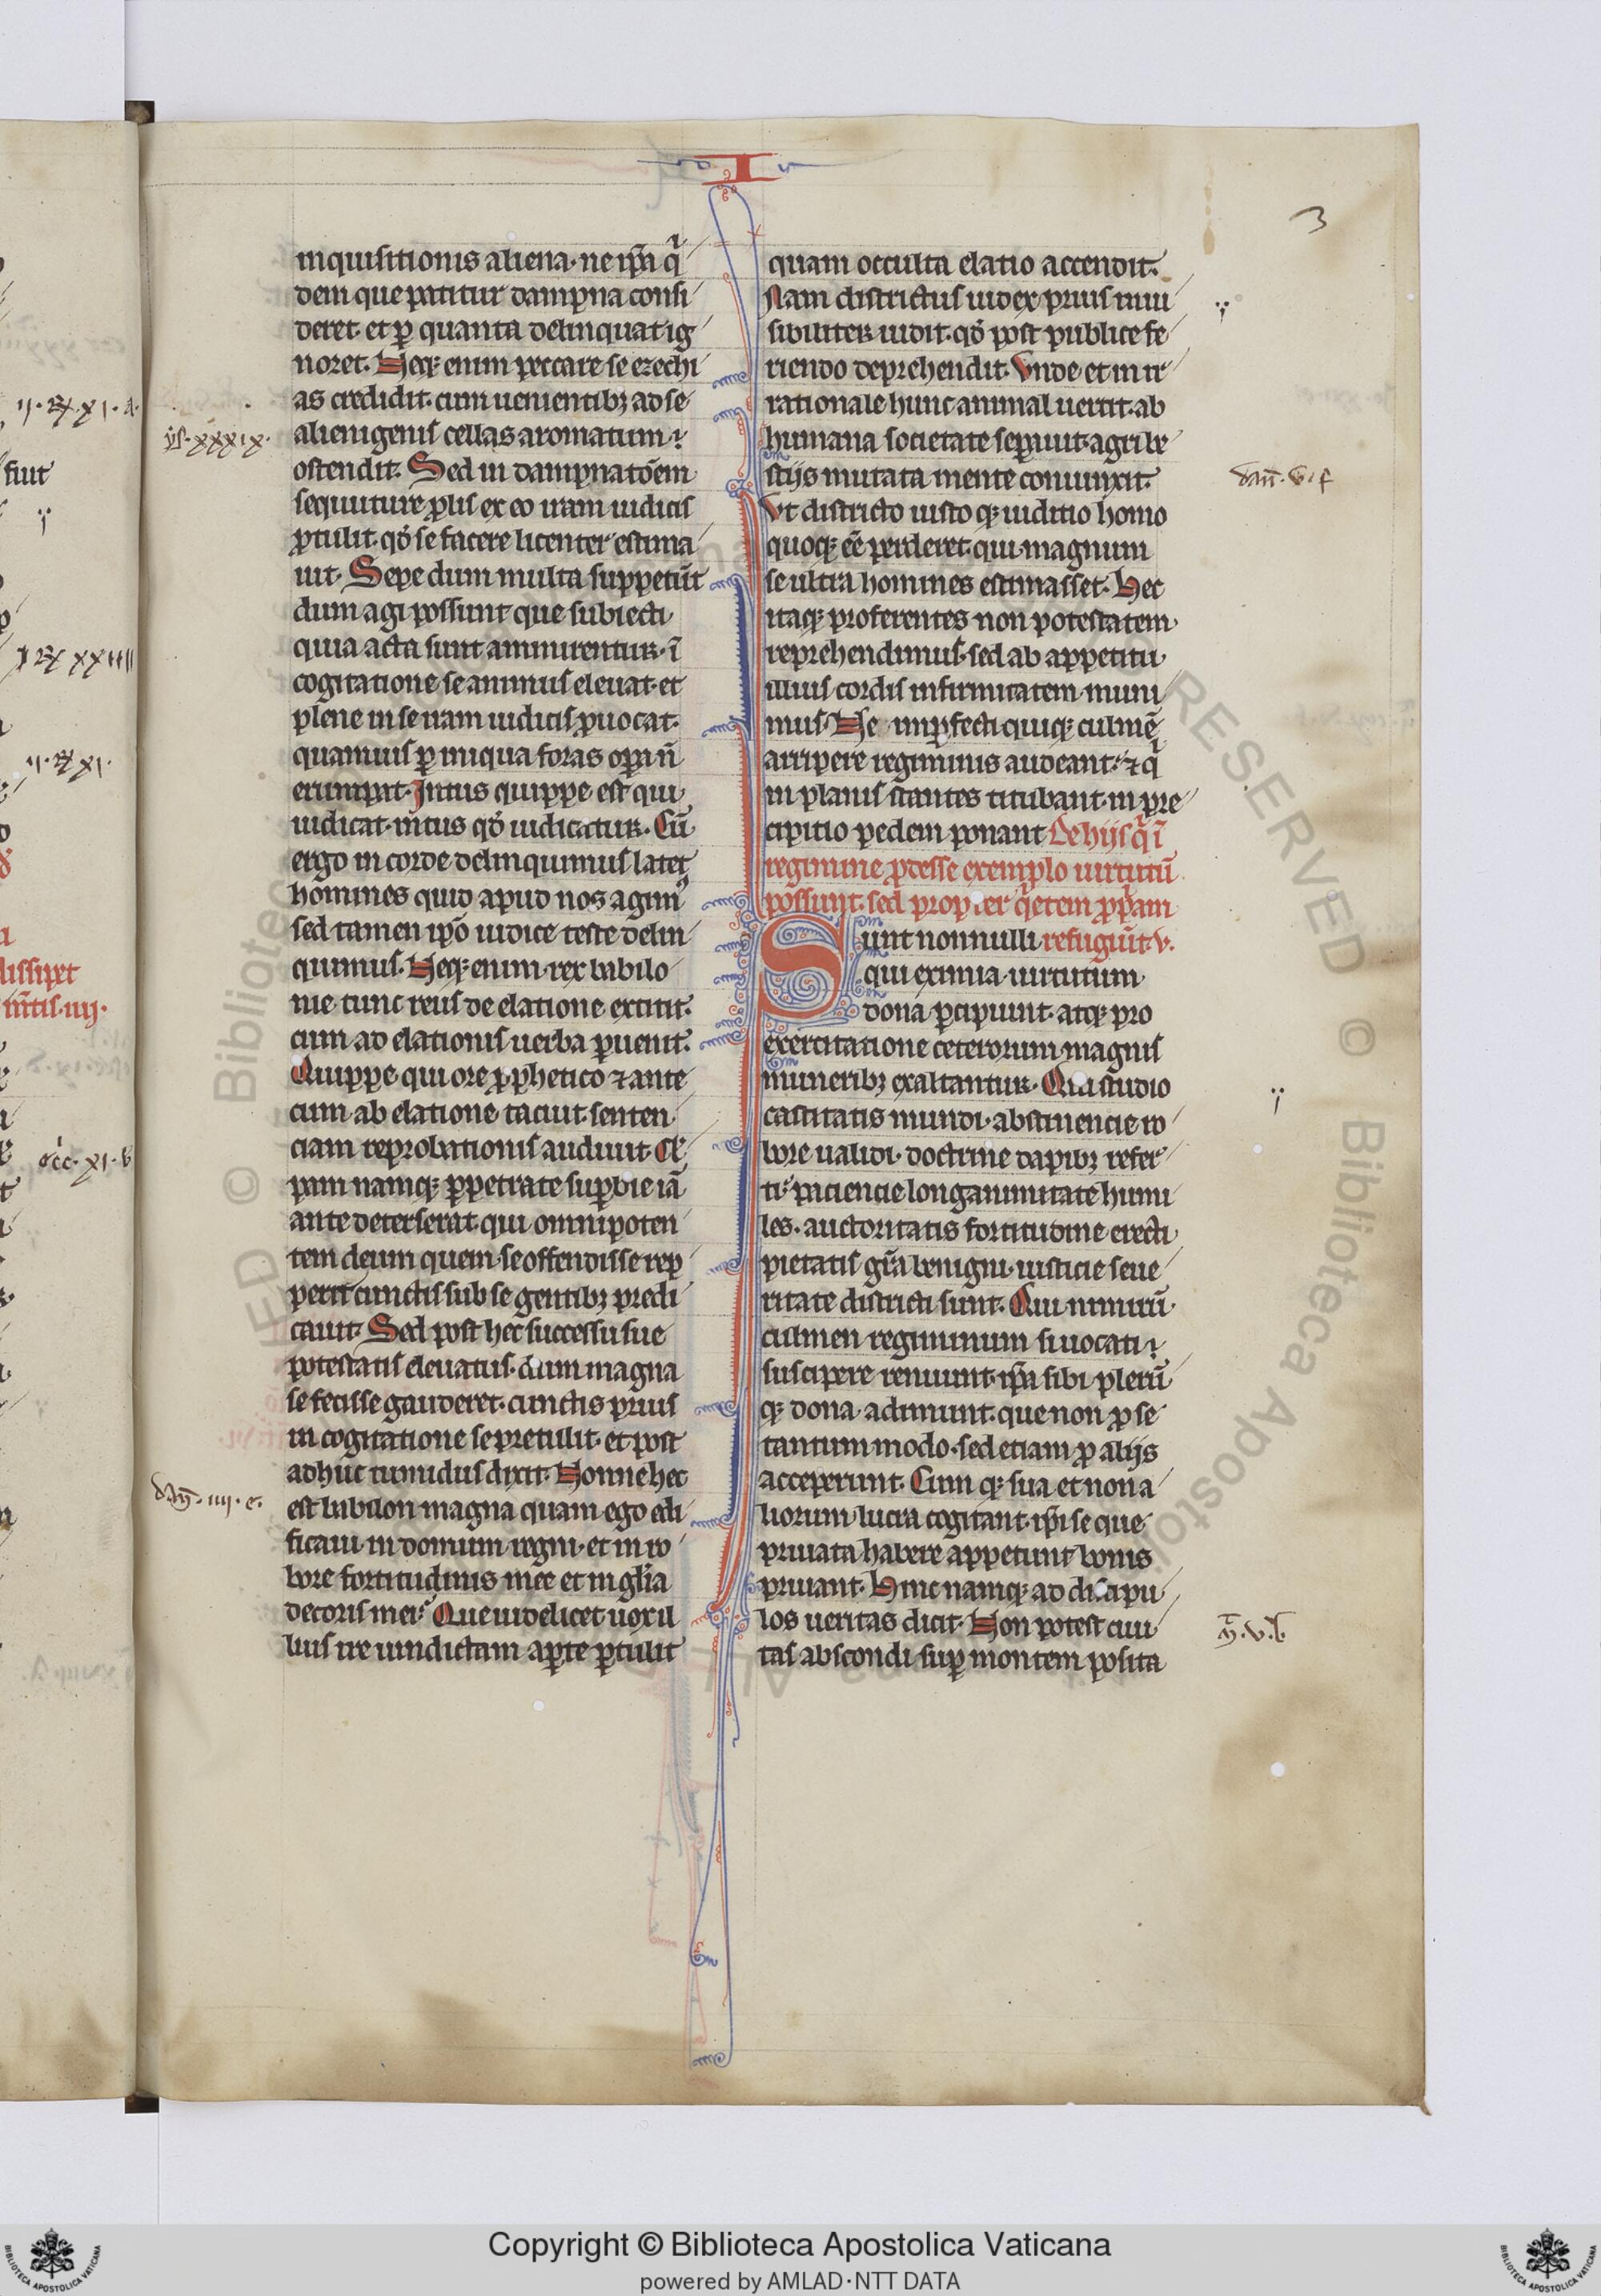 I
3
inquisitionis aliena· ne ip̄a q̄
dem que patitur dampna consi
deret· et p̱ quanta delinquat ig
noret· Neq; enim peccare se ezechi
as credidit· cum uenientibꝫ ad se
alienigenis cellas aromatum
ostendit· Sed in dampnatōem
p̱lis ex eo iram iudicis
ptulit· qd̓ se facere licenter estima
uit· Sepe dum multa suppetūt
dum agi possunt que subiecti
quia acta sunt ammirentur· ī
cogitatione se animus eleuat· et
plene in se iram iudicis p̱uocat·
quamuis p̱ iniqua foras opa n̄
erumpāt· Intus quippe est qui
iudicat· intus qd̓ iudicatur· Cū
ergo in corde delinquimus latet
homines quid apud nos agim⁹
sed tamen ip̄o iudice teste delin
quimus· Neq; enim rex babilo
nie tunc reus de elatione extitit·
cum ad elationis uerba puenit·
Quippe qui ore p̱phetico ⁊ ante
cum ab elatione tacuit· senten
ciam reprobationis audiuit· Cl̓
pam namq; ppetrate supbie iā
ante deterserat· qui omnipoten
tem deum quem se offendisse rep
perit cunctis sub se gentibꝫ predi
cauit· Sed post hec successu sue
potestatis eleuatus· dum magna
se fecisse gauderet· cunctis prius
in cogitatione se pretulit· et post
adhuc tumidus dixit· Nonne hec
est babilon magna quam ego edi
ficaui· in domum regni· et in ro
bore fortitudinis mee et in glīa
decoris mei· Que uidelicet uox il
lius ire uindictam apte ptulit
quam occulta elatio accendit·
Nam districtus iudex prius inui
sibiliter uidit· qd̓ post publice fe
riendo deprehendit· Vnde et in ir
rationale hunc animal uertit· ab
humana societate sepauit· agri be
stijs mutata mente coniunxit·
Vt districto iusto q; iuditio homo
quoq; eē perderet· qui magnum
se ultra homines estimasset· Hec
itaq; proferentes non potestatem
reprehendimus· sed ab appetitu
illius cordis infirmitatem muni
mus· Ne imp̱fecti quiq; culmē
arripere regiminis audeant· ⁊ q̄
in planis stantes titubant· in pre
cipitio pedem ponant De hijs q̄ ī
regimine p̱desse exemplo uirtutū
possunt· sed propter q̄etem p̱p̄am
Sunt nonnulli refugiūt· v·
qui eximia uirtutum
dona pcipiunt· atq; pro
exercitatione ceterorum magnis
muneribꝫ exaltantur· Qui studio
castitatis mundi· abstinencie ro
bore ualidi· doctrine dapibꝫ refer
ti· paciencie longanimitate humi
les· auctoritatis fortitudine erecti
pietatis gr̄a benigni· iusticie seue
ritate districti sunt· Qui nimirū
culmen regiminum si uocati
suscipere renuunt· ip̄a sibi plerū
q; dona adimunt· que non p̱ se
tantum modo· sed etiam p̱ alijs
acceperunt· Cum q; sua et non a
liorum lucra cogitant· ip̄i se que
priuata habere appetunt bonis
priuant· Hinc namq; ad discipu
los ueritas dicit· Non potest ciui
tas abscondi sup montem posita
ys· xxxix·
dan̄· iiij· e·
dan̄· v· f
m̄· v· b·
ij· xi· a·
fiut
xxiiii
ij· xi·
lissipet
m̄tis· iiij·
ecc̓· xi· b
Copyright © Biblioteca Apostolica Vaticana
powered by AMLAD·NTT DATA